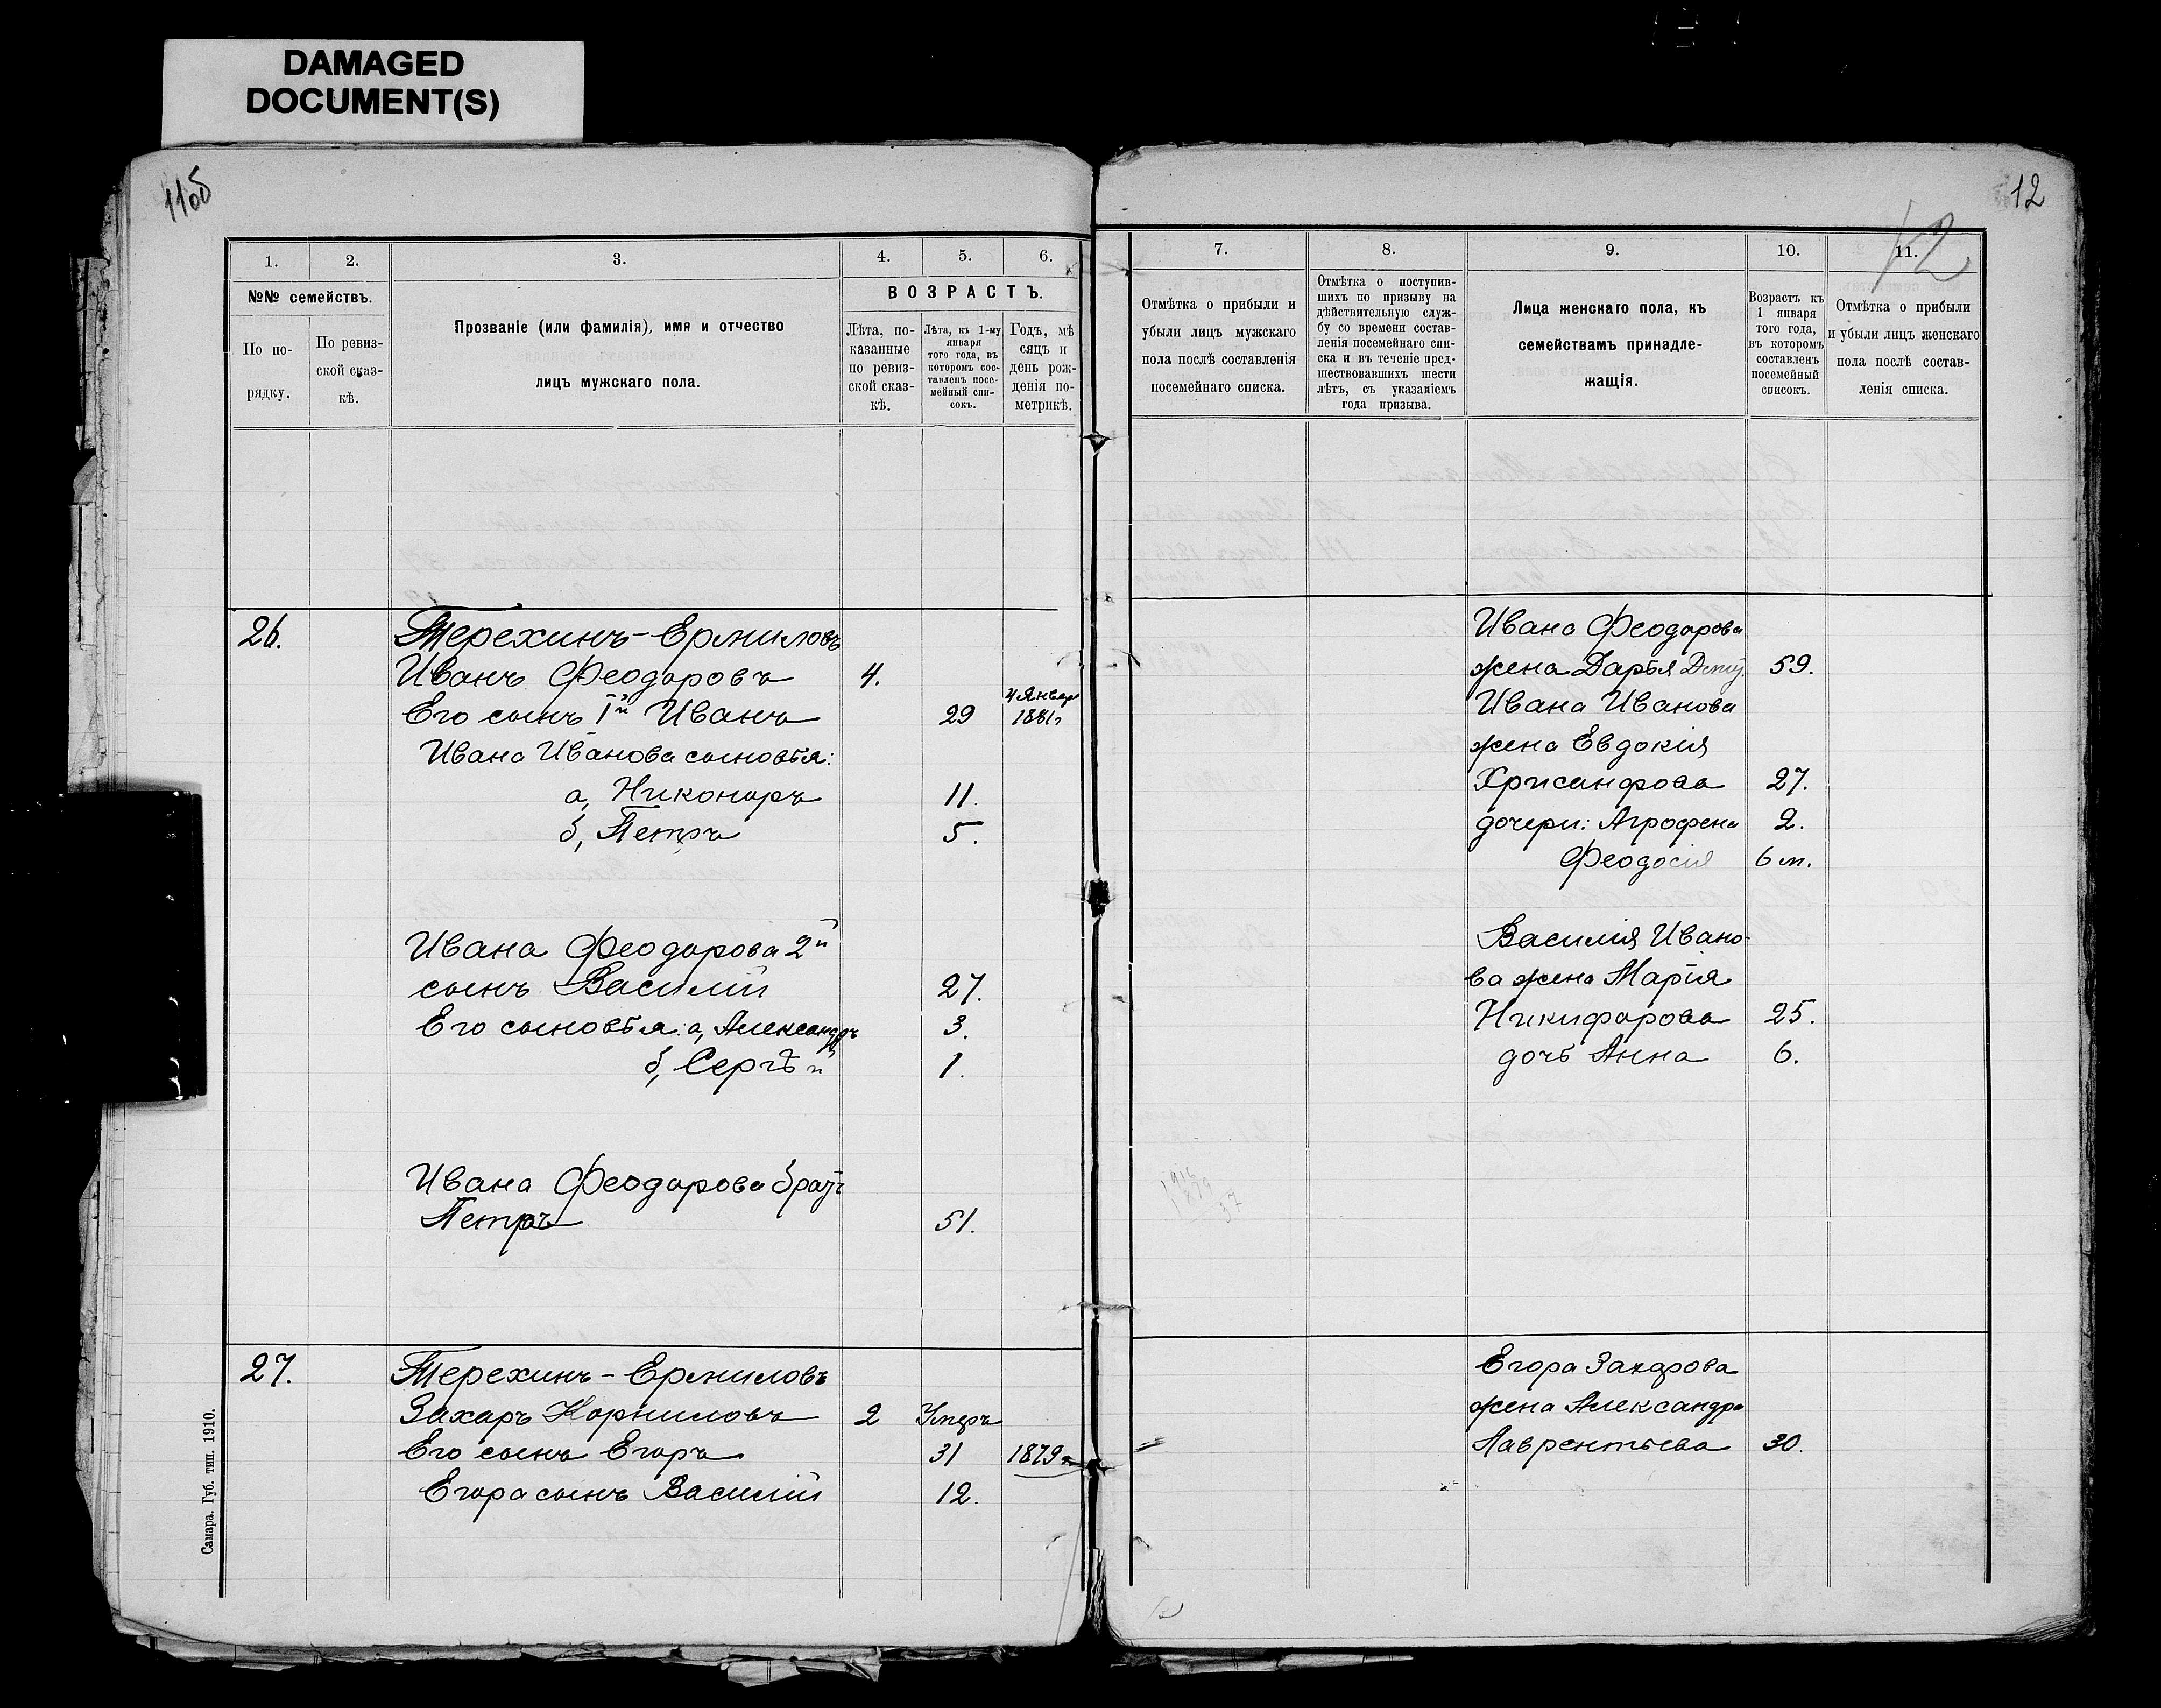 DAMAGED
DOCUMENT(S)
11об
12
12
1.
2.
3.
4.
5.
6.
№№ семействъ.
По по-
рядку.
По ревиз-
ской сказ-
кѣ.
Прозваніе (или фамилія), имя и отчество
лицъ мужскаго пола.
ВОЗРАСТЪ.
Лѣта, по-
казанные
по ревиз-
ской сказ-
кѣ.
Лѣта, къ 1-му
января
того года, въ
которомъ сос-
тавленъ посе-
мейный спи-
сокъ.
Годъ, мѣ
сяцъ и
день рож-
денія по-
метрикѣ.
26.
Терехинъ-Ермиловъ
Иванъ Феодоровъ 4.
Его сынъ 1й Иванъ 29 4 Январ 1881г
Ивана Иванова сыновья:
а, Никоноръ 11.
б, Петръ 5.
Ивана Феодорова 2й
сынъ Василій 27.
Его сыновья: а, Александръ 3.
б, Сергѣй 1.
Ивана Феодорова братъ
Петръ 51.
27.
Терехинъ-Ермиловъ
Захаръ Корниловъ 2 Умеръ
Его сынъ Егоръ 31 1879г
Егора сынъ Василій 12.
Самара. Губ. тип. 1910.
7.
8.
9.
10.
11.
Отмѣтка о прибыли и
убыли лицъ мужскаго
пола послѣ составленія
посемейнаго списка.
Отмѣтка о поступив-
шихъ по призыву на
дѣйствительную служ-
бу со времени состав-
ленія посемейнаго спи-
ска и въ теченіе пред-
шествовавшихъ шести
лѣтъ, съ указаніемъ
года призыва.
Лица женскаго пола, къ
семействамъ принадле-
жащія.
Возрастъ къ
1 января
того года,
въ которомъ
составленъ
посемейный
списокъ.
Отмѣтка о прибыли
и убыли лицъ женскаго
пола послѣ состав-
ленія списка.
Ивана Феодорова
жена Дарья 59.
Ивана Иванова
жена Евдокія
Хрисанфова 27.
дочери: Агрофена 2.
Феодосія 6 м.
Василія Ивано-
ва жена Марія
Никифорова 25.
дочь Анна 6.
1916
1879
37
Егора Захарова
жена Александра
Лаврентьева 30.